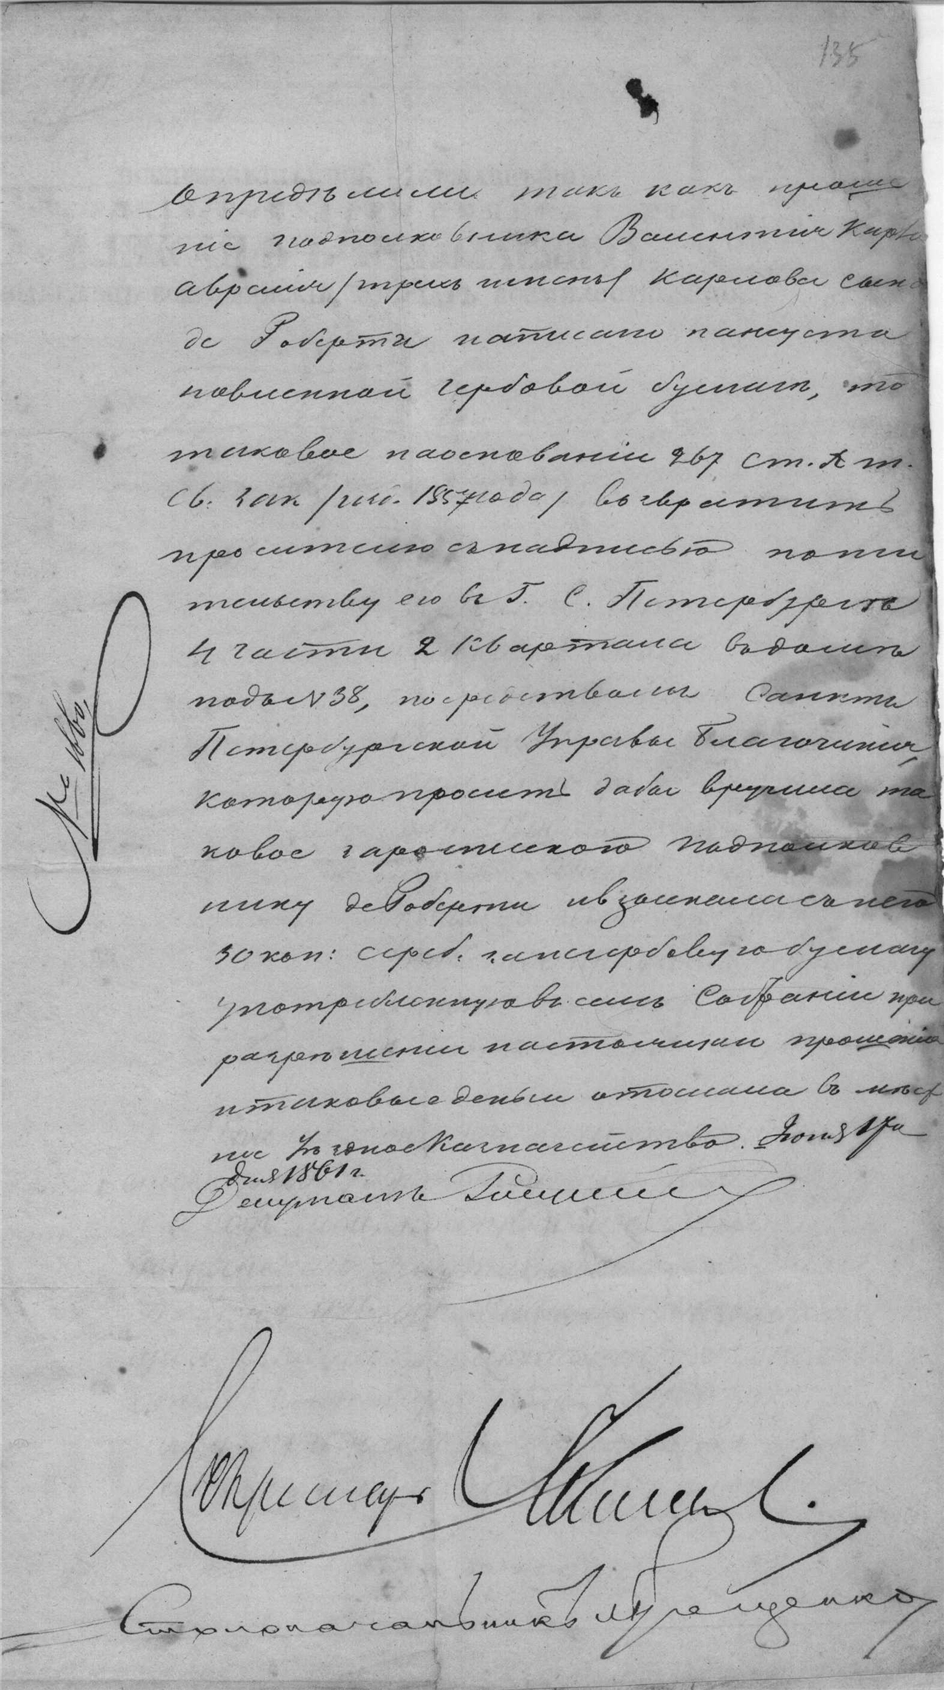 135
опредѣлили такъ какъ проше
ніе подполковника Валентія Карло
Аврелія /трехъ именъ/ Карлова сына
де Роберти написано нанеуста
новленной гербовой бумагѣ, то
таковое наоснованіи 267 ст. X т.
Св. Зак. /изд. 1857 года/ возвратить
просителю съ надписью пожи
тельству его въ Г. С. Петербургѣ
4 части 2 Квартала въ домѣ
подъ N 38, посредствомъ Санктъ
Петербургской Управы Благочинія,
которую просить дабы вручила та
ковое господину Подполков
нику де Роберти и взыскала съ него
30 коп: сереб. за гербовую бумагу
употребленную въ семъ Собраніи при
разрѣшеніи настоящаго прошенія
и таковые деньги отослала въ мѣст
ное Уѣздное Казначейство. Іюня 17го
дня 1861 г.
Депутатъ
№ 1660
Секретарь
Столоначальникъ